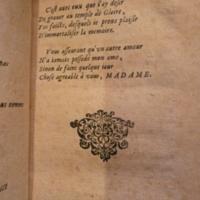 C'est avec eux que j'ay desir
De graver au temple de Gloire,
Vos faicts, desquels ie prens plaisir
D'immortaliser la memoire.
Vous asseurant qu'un autre amour
N'a iamais possedé mon ame,
Sinon de faire quelque tour
Chose agreable à vous, MADAME.